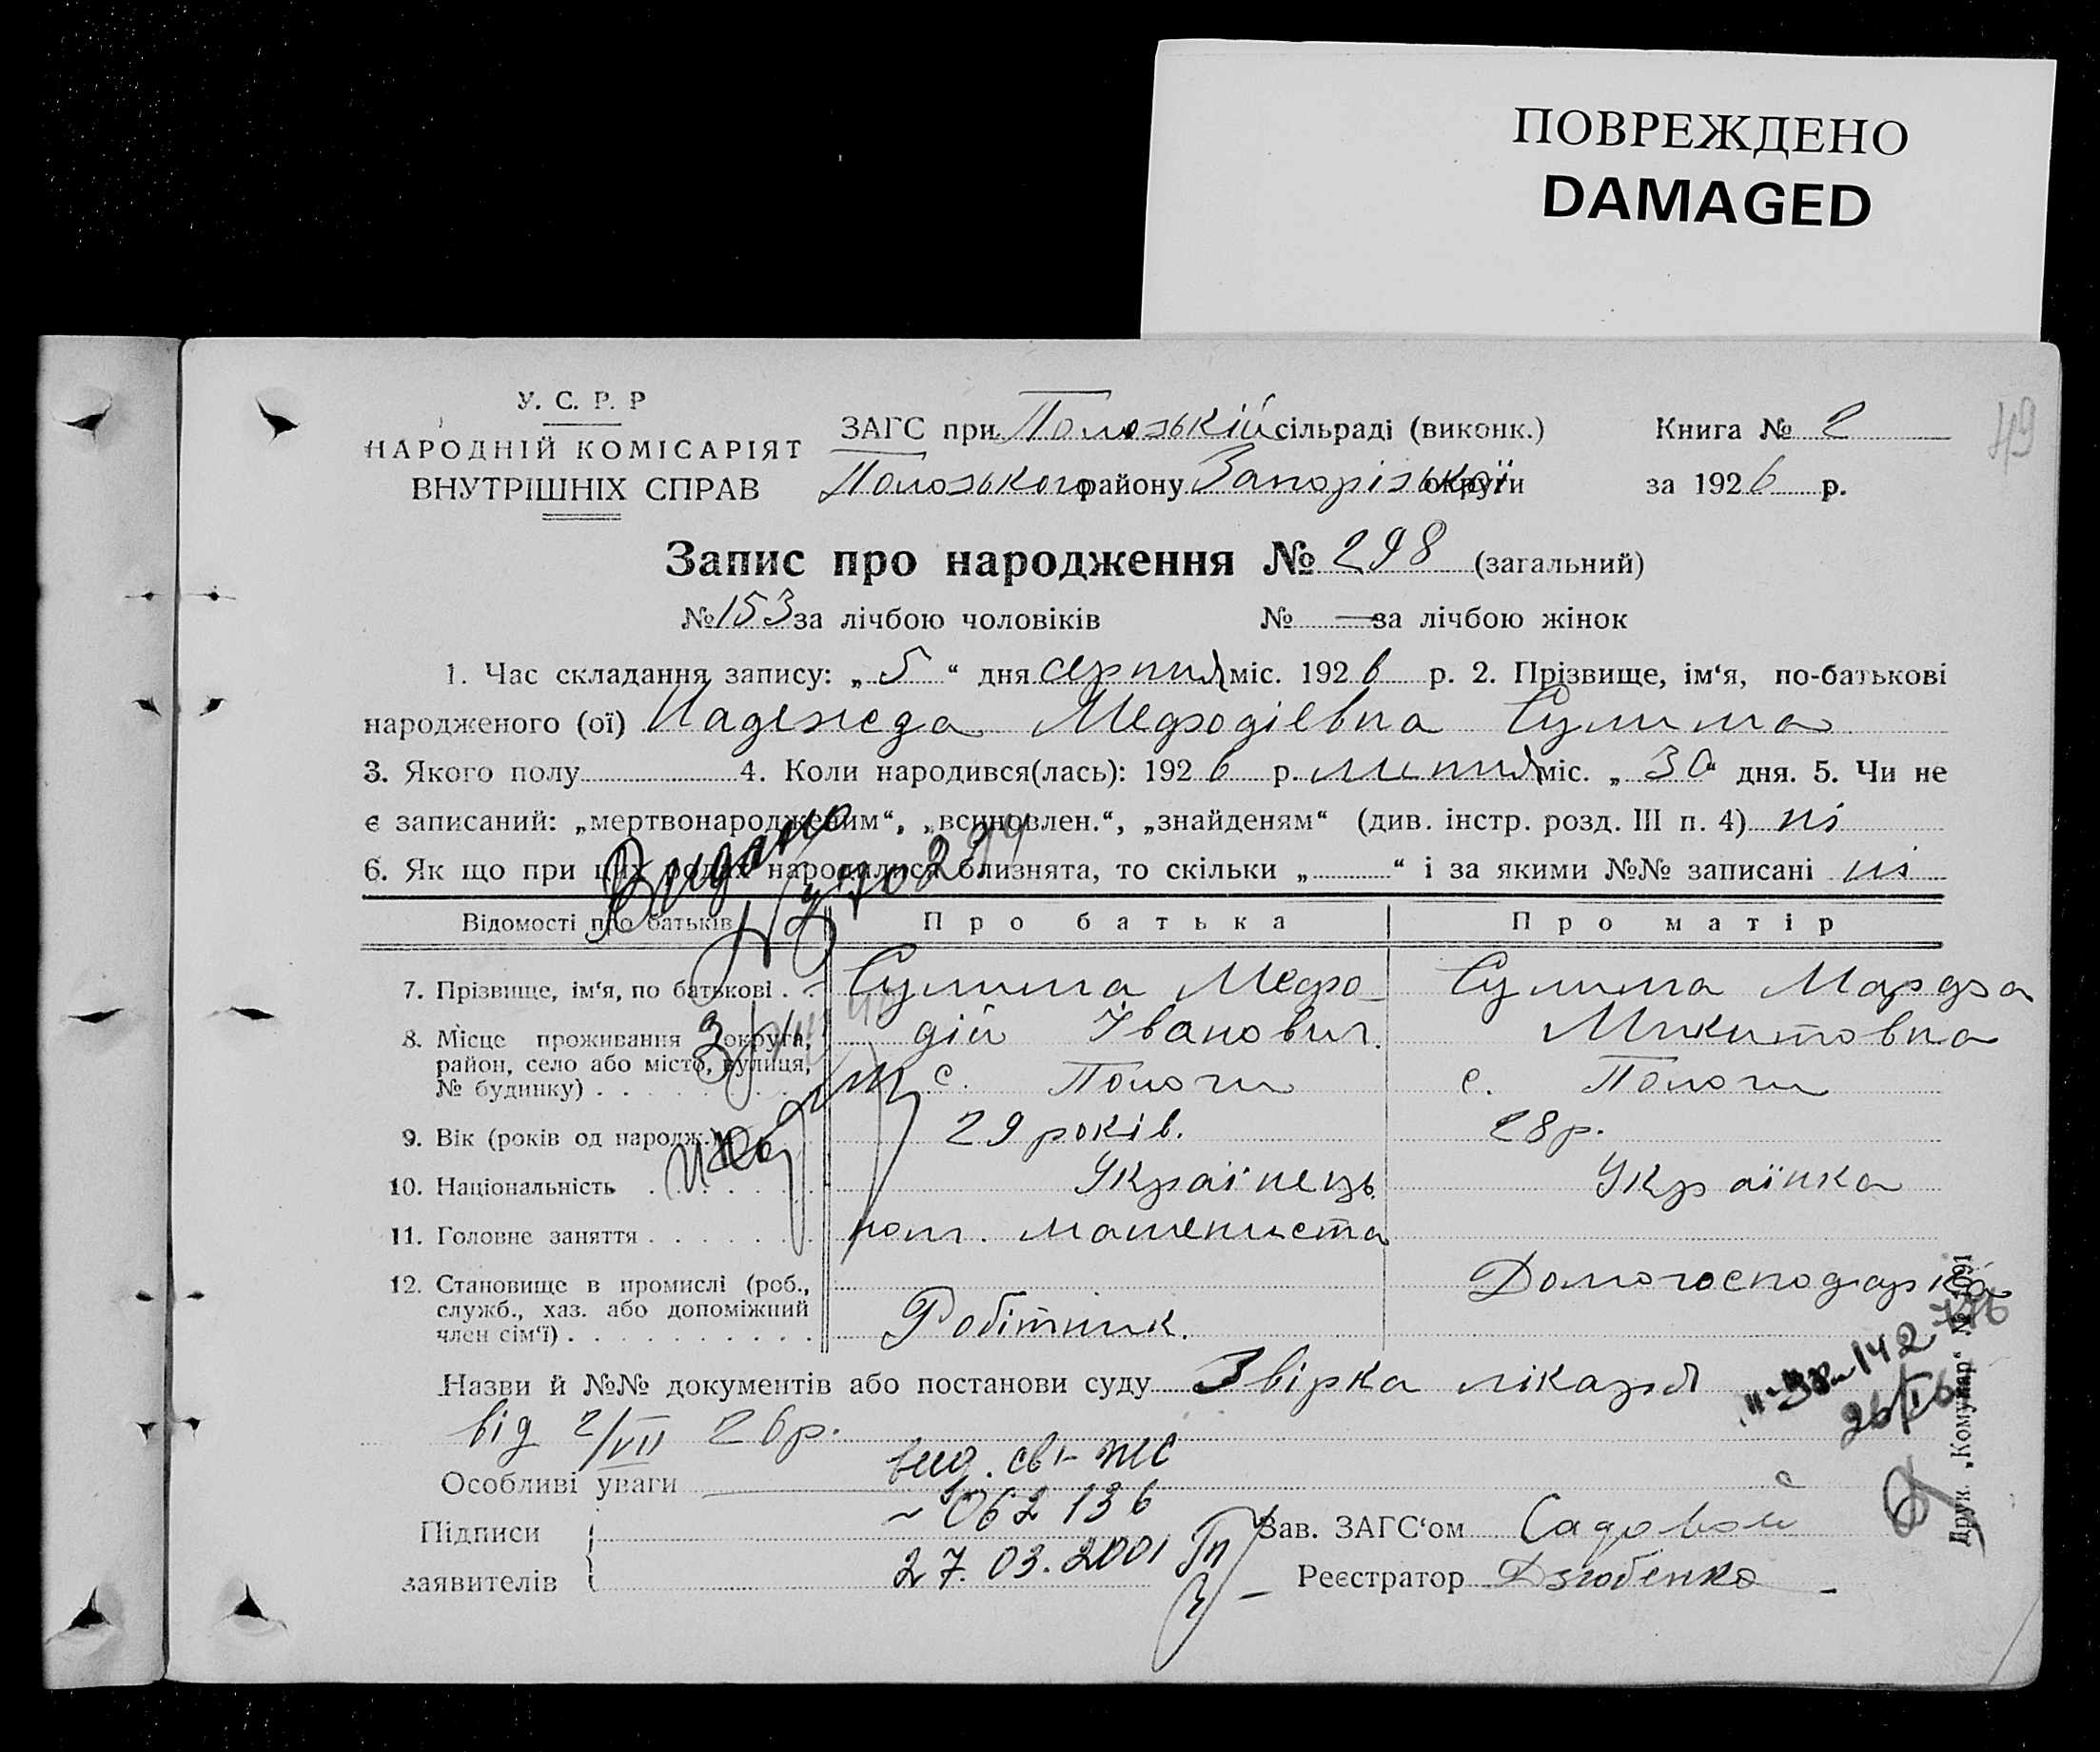 ПОВРЕЖДЕНО
DAMAGED
49
У. С. Р. Р
НАРОДНІЙ КОМІСАРІЯТ
ВНУТРІШНІХ СПРАВ
ЗАГС при Пологській сільраді (виконк.) Книга № 2
Пологського району Запорізької округи за 1926 р.
Запис про народження № 298 (загальний)
№ 153 за лічбою чоловіків № — за лічбою жінок
1. Час складання запису: „ 5 “ дня серпня міс. 1926 р. 2. Прізвище, ім‘я, по-батькові
народженого (ої) Надежда Мефодієвна Сулима
3. Якого полу 4. Коли народився(лась): 1926 р. липня міс. „ 30 “ дня. 5. Чи не
є записаний: „мертвонародженим“, „всиновлен.“, „знайденям“ (див. інстр. розд. III п. 4) ні
6. Як що при цих родах народилися близнята, то скільки „ “ і за якими №№ записані ні
Видано
Відомості про батьків Про батька Про матір
7. Прізвище, ім‘я, по батькові . . Сулима Мефо- Сулима Марфа
дій Іванович. Микитовна
8. Місце проживання округа,
район, село або місто, вулиця,
№ будинку) . с. Пологи с. Пологи
9. Вік (років од народж.) 29 років. 28 р.
10. Національність Українець Українка
11. Головне заняття пом. машениста
12. Становище в промислі (роб.,
служб., хаз. або допоміжний
член сім‘ї) . Робітник. Домогосподарка
Назви й №№ документів або постанови суду Звірка лікаря
від 2/VII 26 р.
Особливі уваги
вид. св- ЖС
062136
27.03.2001
Підписи
заявителів
Зав. ЗАГС‘ом Садовой
Реєстратор Дзюбенко
Друк. „Комунар“ № 1691